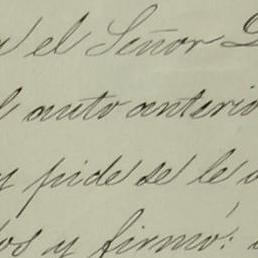 el Señor
auto anterio
y pide se le
y firmó: